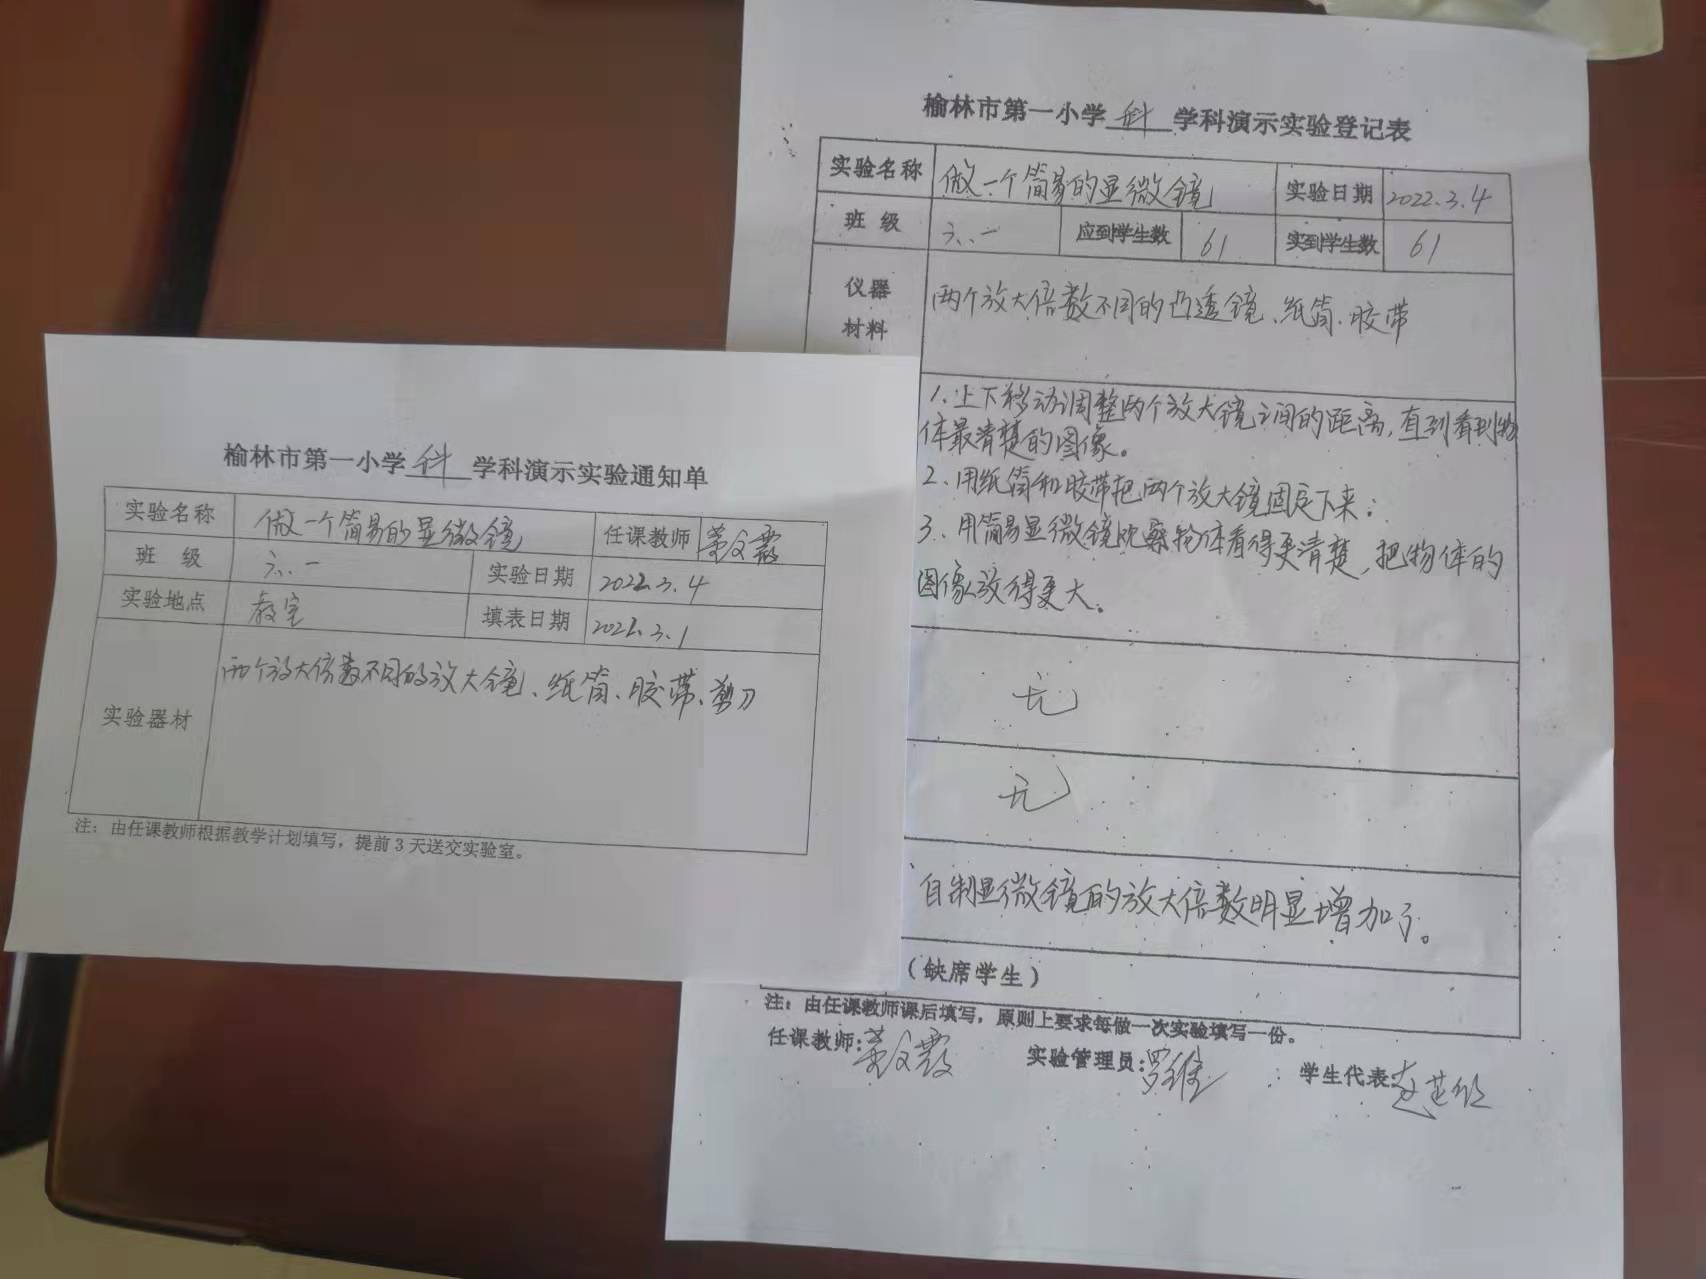 榆林市第一小学 科 学科演示实验通知单
实验名称 做一个简易的显微镜 任课教师
班 级 六.一 实验日期 2022.3.4
实验地点 教室 填表日期 2022.3.1
实验器材 两个放大倍数不同的放大镜、纸筒、胶带、剪刀
注：由任课教师根据教学计划填写，提前3天送交实验室。
榆林市第一小学 科 学科演示实验登记表
实验名称 做一个简易的显微镜 实验日期 2022.3.4
班 级 六.一 应到学生数 61 实到学生数 61
仪器 两个放大倍数不同的凸透镜、纸筒、胶带
材料
1.上下移动调整两个放大镜之间的距离,直到看到物
体最清楚的图像。
2.用纸筒和胶带把两个放大镜固定下来;
3.用简易显微镜观察物体看得更清楚,把物体的
图像放得更大。
无
无
自制显微镜的放大倍数明显增加了。
（缺席学生）
注：由任课教师课后填写，原则上要求每做一次实验填写一份。
任课教师: 实验管理员:罗维 学生代表: